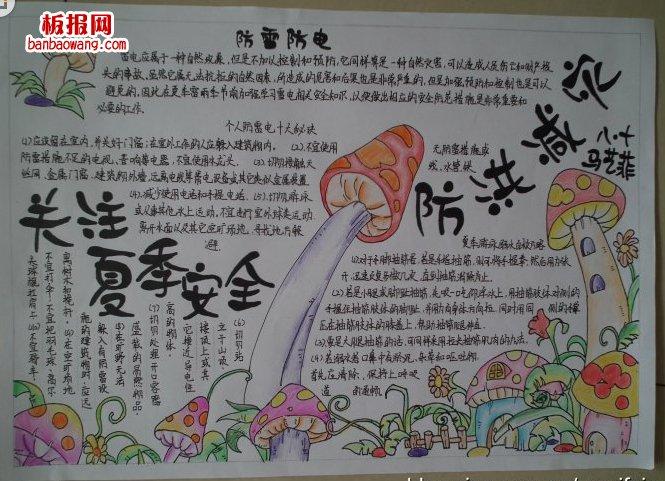 板报网
banbaowang.com
防雷防电
雷电应属于一种自然现象,但是不加以控制和预防,它同样算是一种自然灾害,可以造成人员伤亡和财产损
失的事故。虽然它属无法抗拒的自然因素,所造成的危害和后果也是非常严重的,但是加强预防和控制也是可以
避免的,因此在夏季雷雨季节前加强学习雷电相关安全知识,以便做出相应的安全防范措施是非常重要和
必要的工作。
个人防雷电十大秘诀
(1)应该留在室内,并关好门窗;在室外工作的人应躲入建筑物内。
(2)不宜使用
无防雷措施或
防雷措施不足的电视、音响等电器,不宜使用水龙头。
(3)切勿接触天
线、水管、铁
丝网、金属门窗、建筑物外墙,远离电线等带电设备或其它类似金属装置。
(4)减少使用电话和手提电话。
(5)切勿游泳
或从事其他水上运动,不宜进行室外球类运动,
离开水面以及其它空旷场地,寻找地方躲
避。
(6)切勿站
立于山顶、
楼顶上或其
它接近导电性
高的物体。
(7)切勿处理开口容器
盛载的易燃物品。
(8)在旷野无法
躲入有防雷设
施的建筑物时,应远
离树木和桅杆。
(9)在空旷场地
不宜打伞,不宜把羽毛球、高尔
夫球棍扛肩上。
(10)不宜骑车
关注
夏季安全
防洪
八、十
马艺菲
夏季游泳溺水自救方略
(1)对于手脚抽筋者,若是手指抽筋,则可将手握拳,然后用力张
开,迅速反复多做几次,直到抽筋消除为止。
(2)若是小腿或脚趾抽筋,先吸一口气仰浮水上,用抽筋肢体对侧的
手握住抽筋肢体的脚趾,并用力向身体方向拉,同时用同侧的手掌
压在抽筋肢体的膝盖上,帮助抽筋腿伸直。
(3)要是大腿抽筋的话,可同样采用拉长抽筋肌肉的办法。
首先应清除,保持上呼吸
道的通畅。